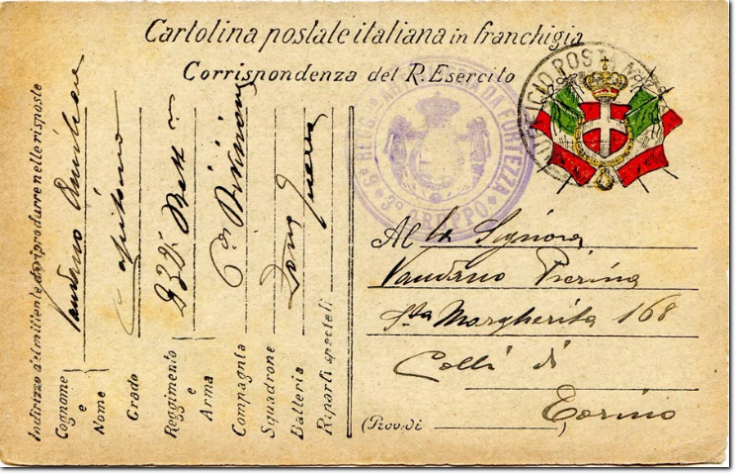 Cartolina postale italiana in franchigia
Corrispondenza del R. Esercito
UFFICIO POSTA
9º REGG.TO ARTIGLIERIA DA FORTEZZA
3º GRUPPO
Al la Signora
Vaudano Pierina
Sta Margherita 168
Colli di
(Prov. di Torino
Indirizzo del mittente da riprodurre nelle risposte
Cognome e Nome Vaudano
Grado Capitano
Reggimento e Arma
Compagnia 6a Divisione
Squadrone
Batteria Zona Guerra
Riparti speciali